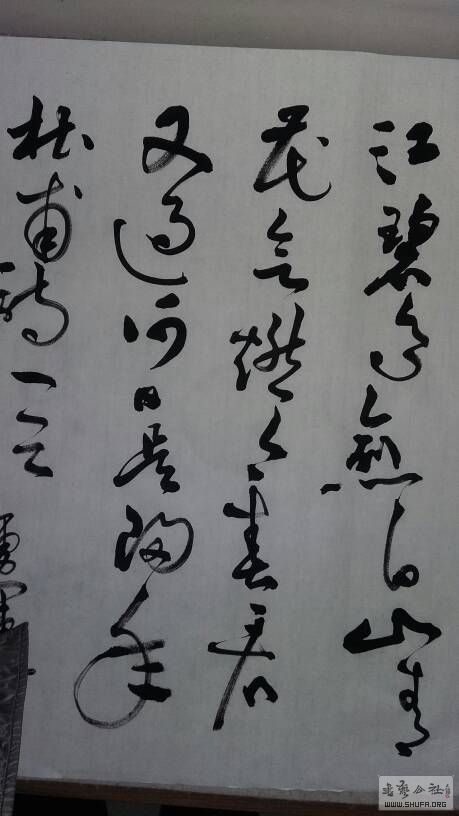 江碧鳥愈白山青
花欲燃今春看
又過何日是歸年
杜甫詩一首
书艺公社
WWW.SHUFA.ORG